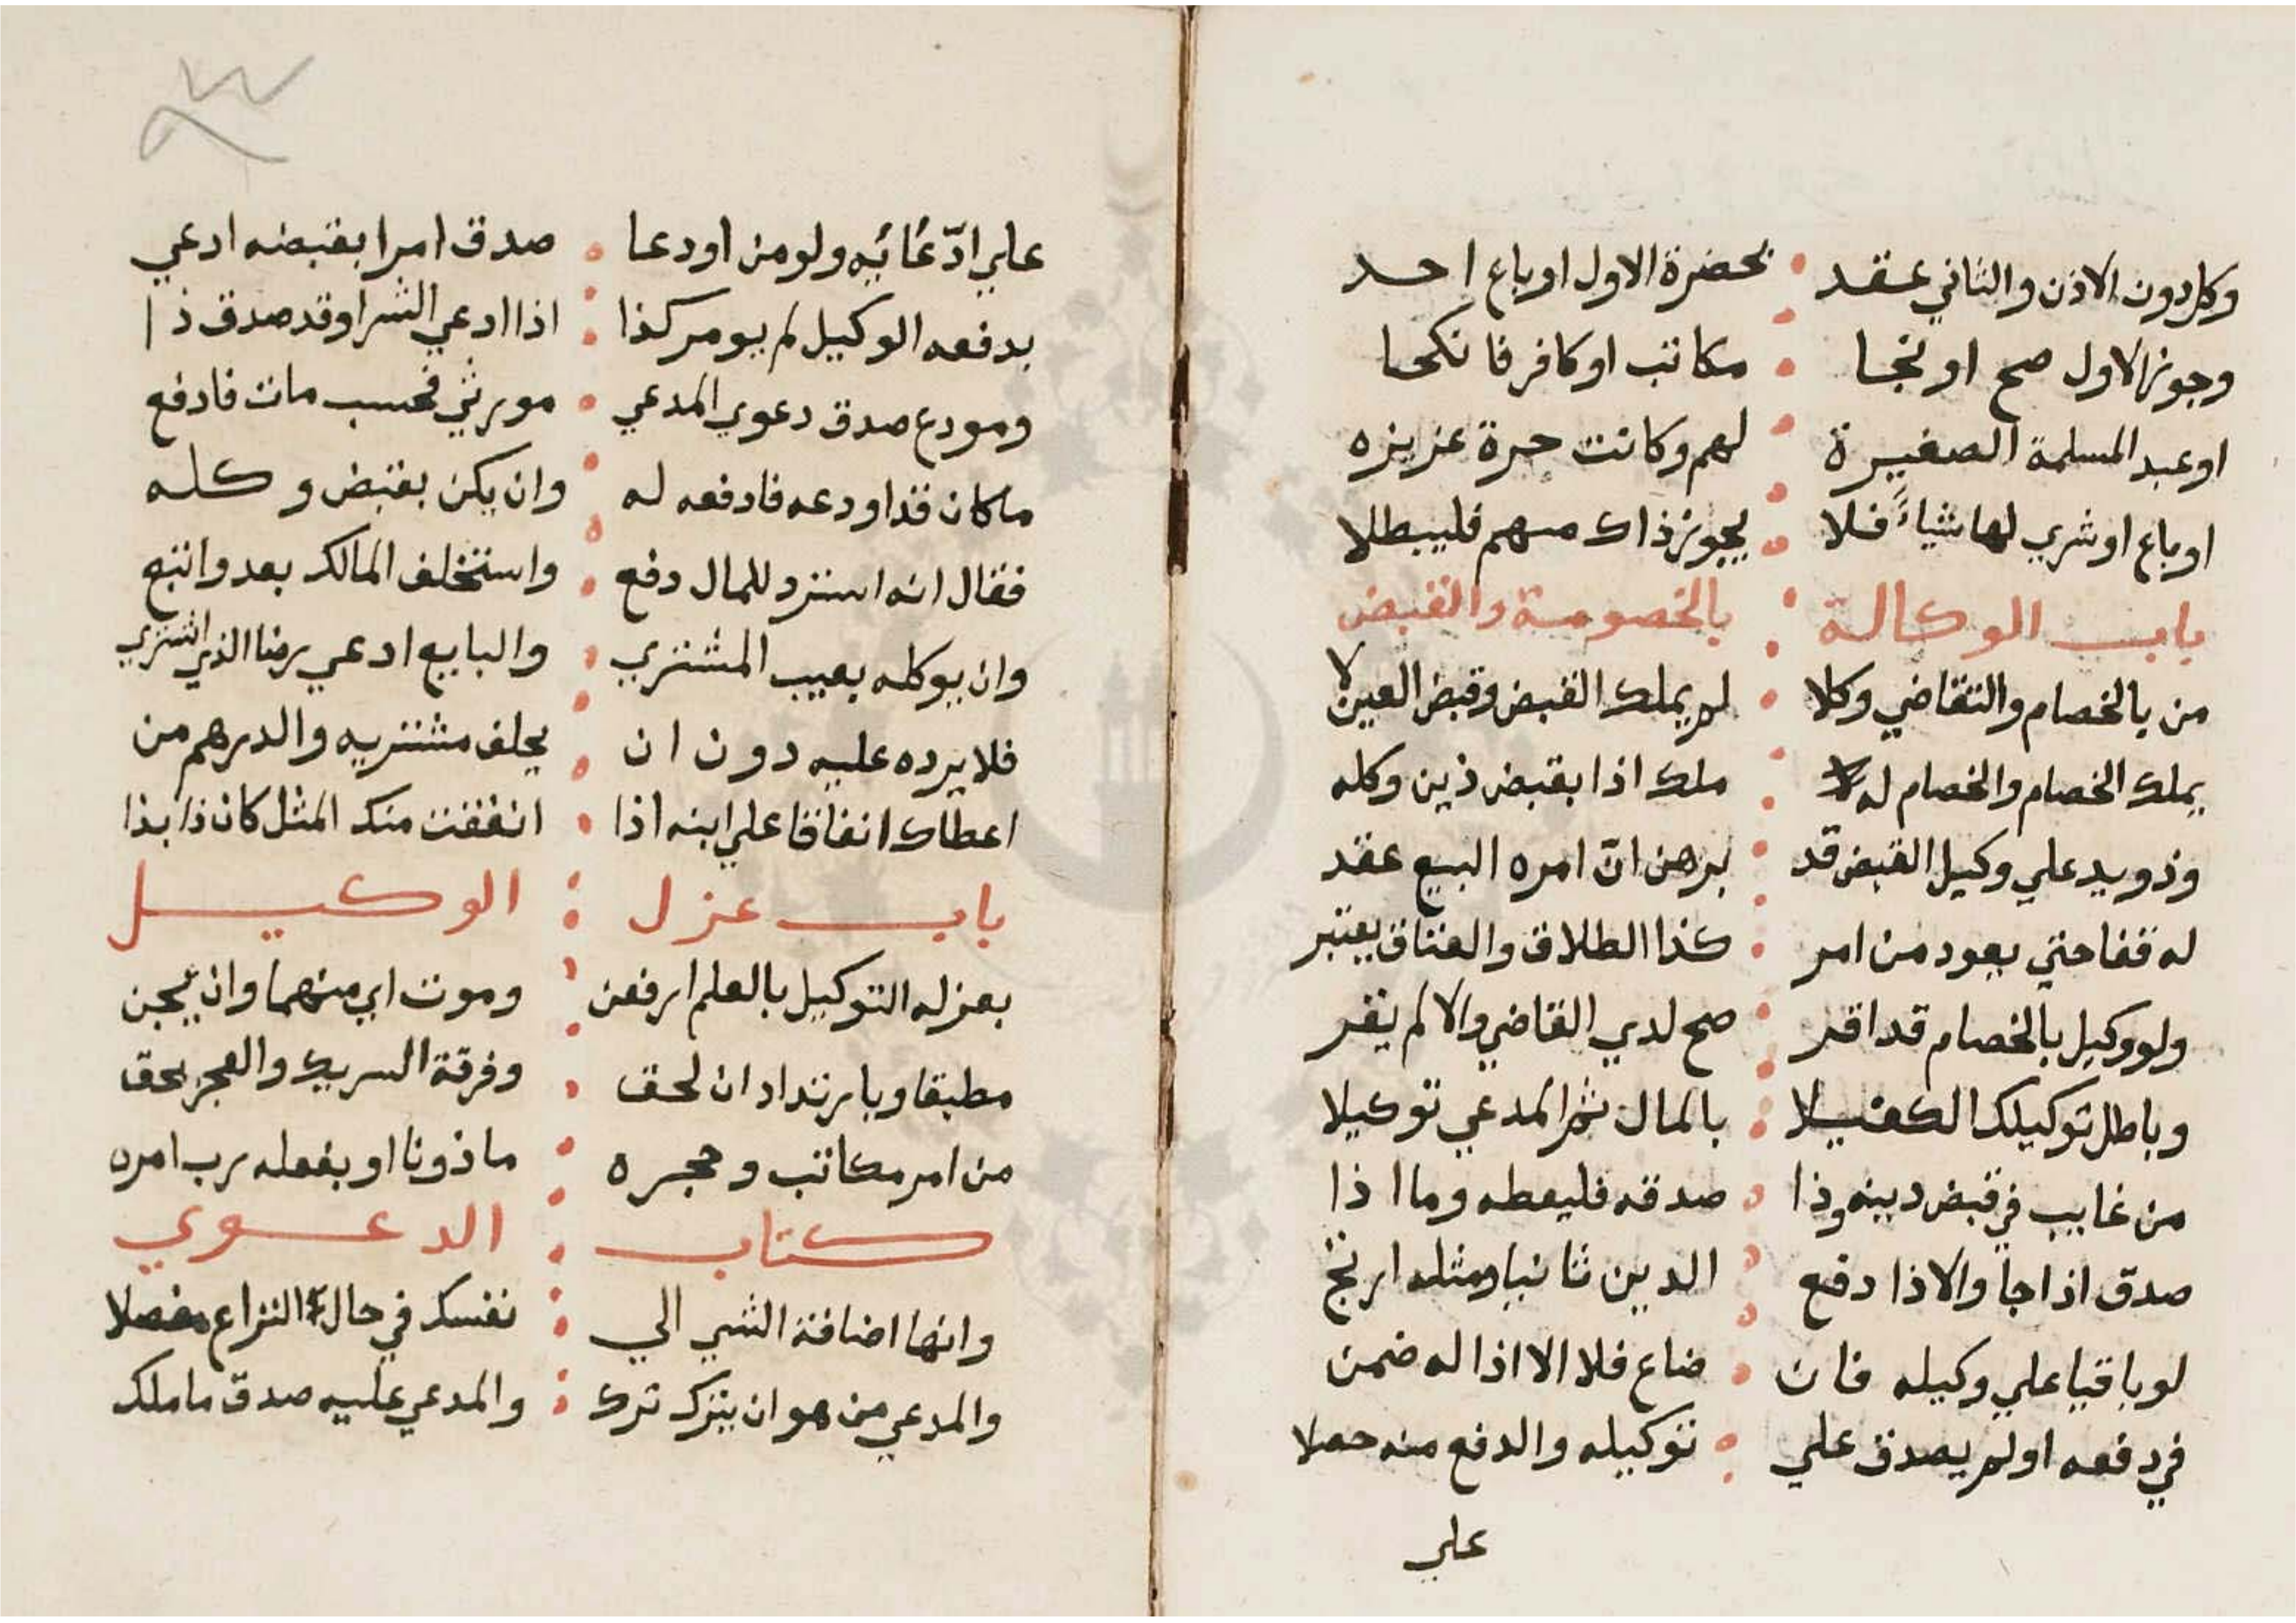 وكل دون الاذن والثاني عقد بحضرة الاول او باع احد
وجوز الاول صح او نجا مكاتب او كافر فانكحا
او عبد المسلمة الصغيرة لهم وكانت حرة عزيزه
او باع او شري لها شياءً فلا يجوز ذاك منهم فليبطلا
باب الوكالة بالخصومة والقبض
من بالخصام والتقاضي وكلا لم يملك القبض وقبض العين لا
يملك الخصام والخصام له ملك اذا بقبض ذين وكله
وذو يد علي وكيل القبض قد برهن انّ امره البيع عقد
له قفا حتي يعود من امر كذا الطلاق والعتاق يعتبر
ولو وكيل بالخصام قد اقر صح لدي القاضي والا لم يقر
وباطل توكيلك الكفيلا بالمال ثم المدعي توكيلا
من غايب في قبض دينه وذا صدقه فليعطه وما اذا
صدق اذا جا والا ذا دفع الدين ثانيا ومثله
لو باقيا علي وكيله فان ضاع فلا الا اذا له ضمن
في دفعه او لم يصدق علي توكيله والدفع منه حصلا
علي
علي ادّعائه ولو من اودعا صدق امرا بقبضه ادعي
بدفعه الوكيل لم يومر كذا اذا ادعي الشرا وقد صدق ذا
ومودع صدق دعوي المدعي مورثي فحسب مات فادفع
ما كان قد اودعه فادفعه له وان يكن بقبض وكله
فقال انه استرد للمال دفع واستخلف المالك بعد واتبع
وان يوكله بعيب المشتري والبايع ادعي رضا الذي اشتري
فلا يرده عليه دون ان يحلف مشتريه والدرهم من
اعطاك انفاقا علي ابنه اذا انفقت منك المثل كان ذا بذا
باب عزل الوكيل
بعزله التوكيل بالعلم ارفعن وموت اي منهما وان يجن
مطبقا وبارتداد ان لحق وفرقة السريك والعجز يحق
من امر مكاتب وحجره ماذونا او بفعله رب امره
كتاب الدعوي
وانها اضافة الشي الي نفسك في حال النزاع مفصلا
والمدعي من هو ان يترك ترك والمدعي عليه صدق ما ملك